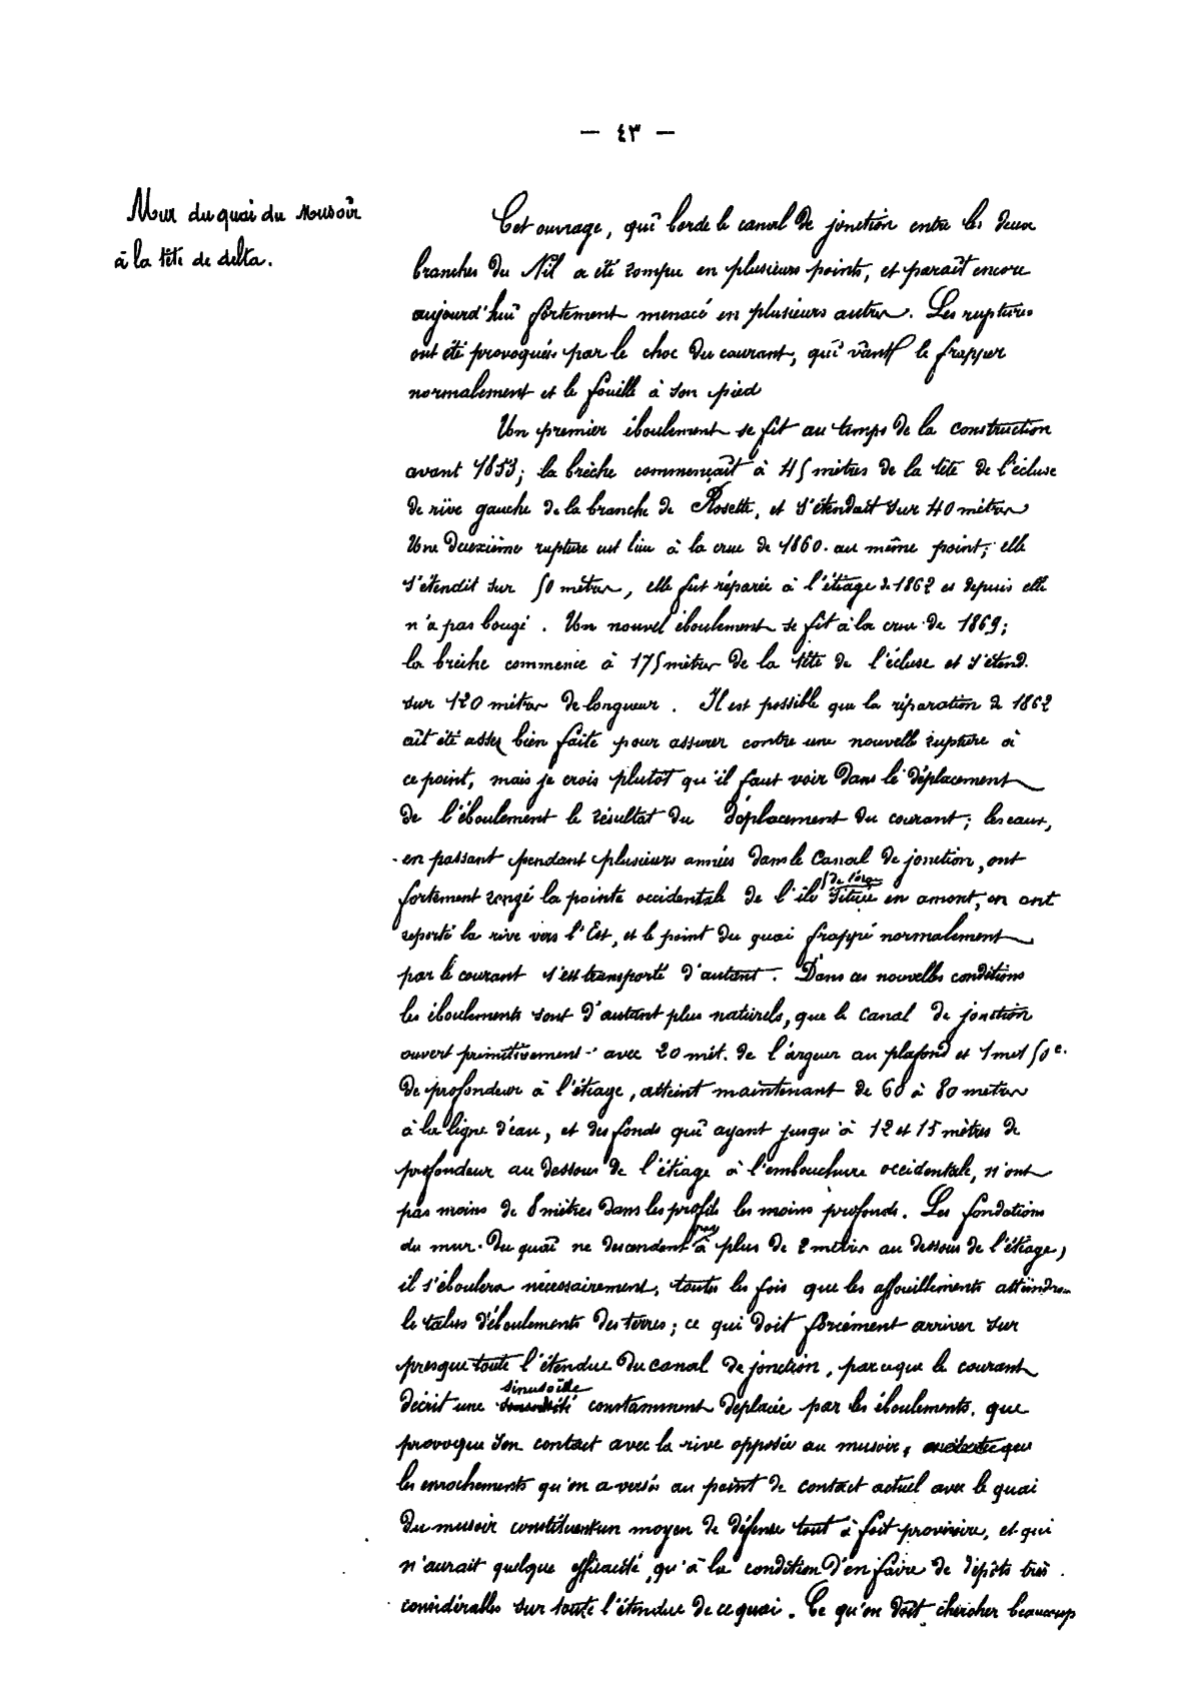 — ٤٣ —
Mur du quai du Musoir
à la tête de delta.
Cet ouvrage, qui borde le canal de jonction entre les deux
branches du Nil a été rompu en plusieurs points, et parait encore
aujourd'hui fortement menacé en plusieurs autres. Les ruptures
ont été provoquées par le choc du courant, qui vient le frapper
normalement et le fouille à son pied
Un premier éboulement se fit au temps de la construction
avant 1853; la brèche commençait à 45 mètres de la tête de l'écluse
de rive gauche de la branche de Rosette, et s'étendait sur 40 mètres
Une deuxième rupture eut lieu à la crue de 1860. au même point; elle
s'étendit sur 50 mètres, elle fut réparée à l'étiage de 1862 et depuis elle
n'a pas bougé. Un nouvel éboulement se fit à la crue de 1869;
la brèche commence à 175 mètres de la tête de l'écluse et s'étend
sur 120 mètres de longueur. Il est possible que la réparation de 1862
ait été assez bien faite pour assurer contre une nouvelle rupture à
ce point, mais je crois plutot qu'il faut voir dans le déplacement
de l'éboulement le résultat du déplacement du courant; les eaux,
en passant pendant plusieurs années dans le Canal de jonction, ont
fortement rongé la pointe occidentale de l'ile située en amont, en ont
reporté la rive vers l'Est, et le point du quai frappé normalement
par le courant s'est transporté d'autant. Dans ces nouvelles conditions
les éboulements sont d'autant plus naturels, que le Canal de jonction
ouvert primitivement avec 20 mét. de largeur au plafond et 1 met 50 c.
de profondeur à l'étiage, atteint maintenant de 60 à 80 metres
à la ligne d'eau, et des fonds qui ayant jusqu'à 12 et 15 mètres de
profondeur au dessous de l'étiage à l'embouchure occidentale, n'ont
pas moins de 8 mètres dans les profils les moins profonds. Les fondations
du mur du quai ne descendent pas à plus de 2 mètres au dessous de l'étiage,
il s'éboulera nécessairement, toutes les fois que les affouillements atteindront
le talus d'éboulements des terres; ce qui doit forcément arriver sur
presque toute l'étendue du canal de jonction, parceque le courant
décrit une sinusoïde constamment déplacée par les éboulements. que
provoque son contact avec la rive opposée au musoir,
les enrochements qu'on a versés au point de contact actuel avec le quai
du musoir constituent un moyen de défense tout à fait provisoire, et qui
n'aurait quelque efficacité, qu'à la condition d'en faire de dépôts très
considérables sur toute l'étendue de ce quai. Ce qu'on doit chercher beaucoup